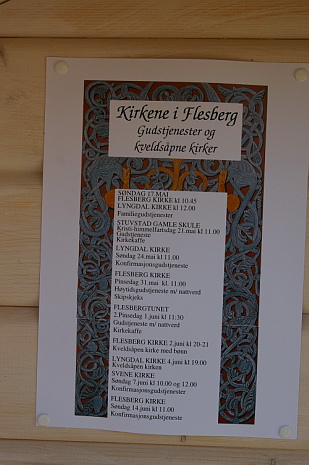 Kirkene i Flesberg
Gudstjenester og
kveldsåpne kirker
SØNDAG 17.MAI
FLESBERG KIRKE kl 10.45
LYNGDAL KIRKE kl 12.00
Familiegudstjenester
STUVSTAD GAMLE SKULE
Kristi-himmelfartsdag 21.mai kl 11.00
Gudstjeneste
Kirkekaffe
LYNGDAL KIRKE
Søndag 24.mai kl 11.00
Konfirmasjonsgudstjeneste
FLESBERG KIRKE
Pinsedag 31.mai kl. 11.00
Høytidsgudstjeneste m/ nattverd
Skipskjeks
FLESBERGTUNET
2.Pinsedag 1.juni kl 11:30
Gudstjeneste m/ nattverd
Kirkekaffe
FLESBERG KIRKE 2.juni kl 20-21
Kveldsåpen kirke med bønn
LYNGDAL KIRKE 4.juni kl 19.00
Kveldsåpen kirken
SVENE KIRKE
Søndag 7.juni kl 10.00 og 12.00
Konfirmasjonsgudstjeneste
FLESBERG KIRKE
Søndag 14.juni kl 11.00
Konfirmasjonsgudstjeneste